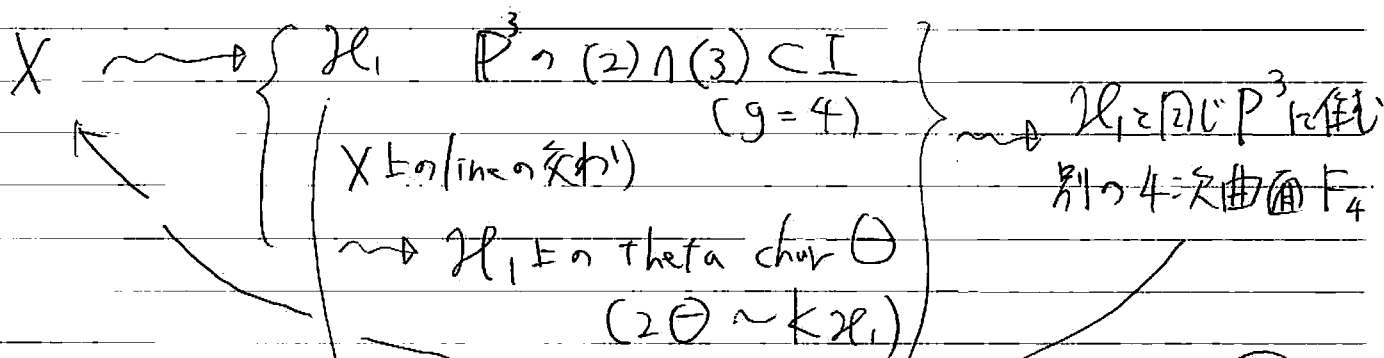 X ⇝ { ℋ₁ P³の(2)∩(3) ⊂ I
(g=4)
X上のlineの交わり
⇝ ℋ₁上の theta char Θ
(2Θ ~ Kℋ₁)
} ⇝ ℋ₁と同じP³に住む
別の4次曲面F₄